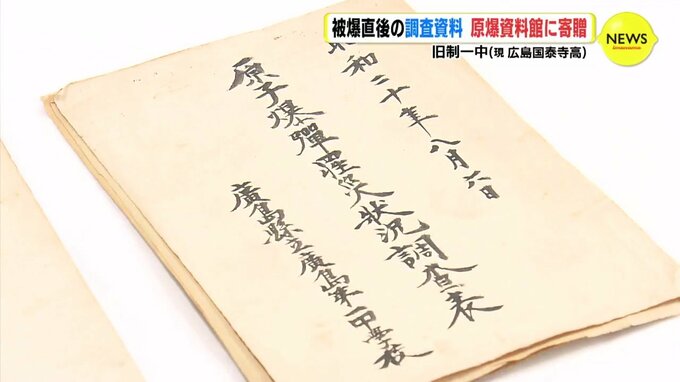 被爆直後の調査資料 原爆資料館に寄贈
旧制一中(現 広島国泰寺高)
NEWS
昭和二十年八月六日
原子爆彈罹災狀況調査表
廣島縣立廣島第一中學校